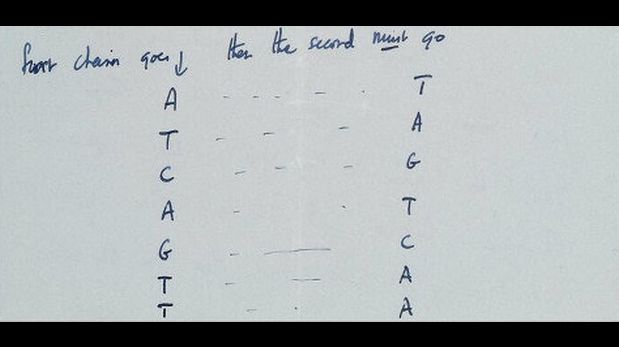 first chain goes ↓ then the second must go
A - - - - - T
T - - - A
C - - - G
A - - T
G - — C
T - — A
T - - A